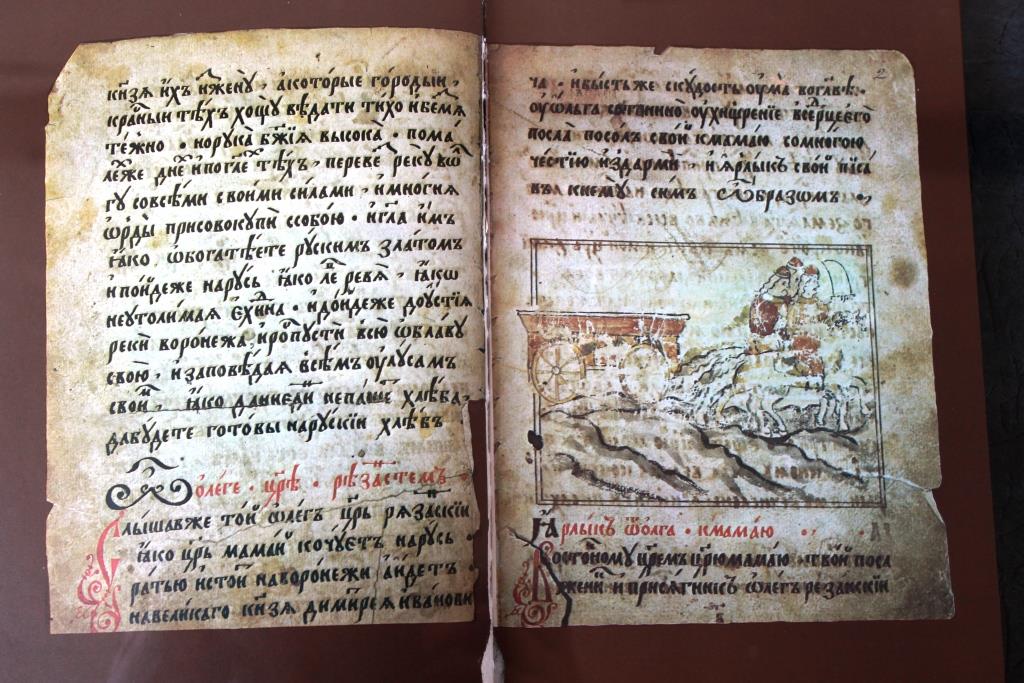 кн҃зя и́хъ и҆жену̀ , а҆которые го́роды и҆
кра́йныи тѣ́хъ хощу вѣ́дати ти́хо и҆бемя
тѣ́жно · но рука̀ бж҃їя высока̀ · пома́
лѣ́же дне́й и҆погле тѣ́хъ , переве́ реку̀ вѡ
гу совсѣ́ми сво́ими си́лами , и҆мно́гия
ѡ҆рды̀ присовокупи ссобо́ю · и҆гла и́мъ
ꙗ҆́ко , ѡ҆богатѣ́ете ру́скимъ зла́томъ
и҆пои́деже на ру́сь ꙗ҆́ко ле ревя , ꙗ҆́кѡ
неутоли́мая є҆хи́дна · и҆до́идеже до у҆́стїя
рекѝ воро́нежа , и҆ропусти всю̀ ѡ҆бла́ву
свою̀ , и҆заповѣ́дая всѣ́мъ оу҆лу́самъ
свои́ , ꙗ҆́ко да ниеди́ непаше хлѣ́ба ,
да бу́дете гото́вы на ру́скїи хлѣ́бъ
Ѡ҆ оле́ге · цр҃ѣ · рѣза́стемъ
Слы́шавже то́й ѡ҆ле́гъ цр҃ь ряза́скїи
ꙗ҆́ко цр҃ь мама́й кочу́етъ на ру́сь ·
ра́тью и҆сто́й на воро́нежи а҆и́детъ
на вели́каго кн҃зя ди́митрея и҆ва́нови
2
ча · и҆бы́сть же ску́дость оу҆ма̀ во главѣ̀ ·
оу҆ ѡ҆льга , сотанино́ оу҆хищре́нїе вве́рщеего
посла̀ посо́лъ сво́й к мама́ю со мно́гою
че́стїю и҆здарми , и҆ ꙗ҆рлы́къ сво́й писа
въ кнему̀ и҆ си́мъ Ѡ҆бразомъ ·,
Ꙗ҆рлыкъ ѿ ѡ҆лга · к мама́ю · · ,
Восто́чному цр҃емъ цр҃ю мама́ю · тво́й поса
жени́ и҆ прися́гникъ ѡ҆ле́гъ реза́нскїи